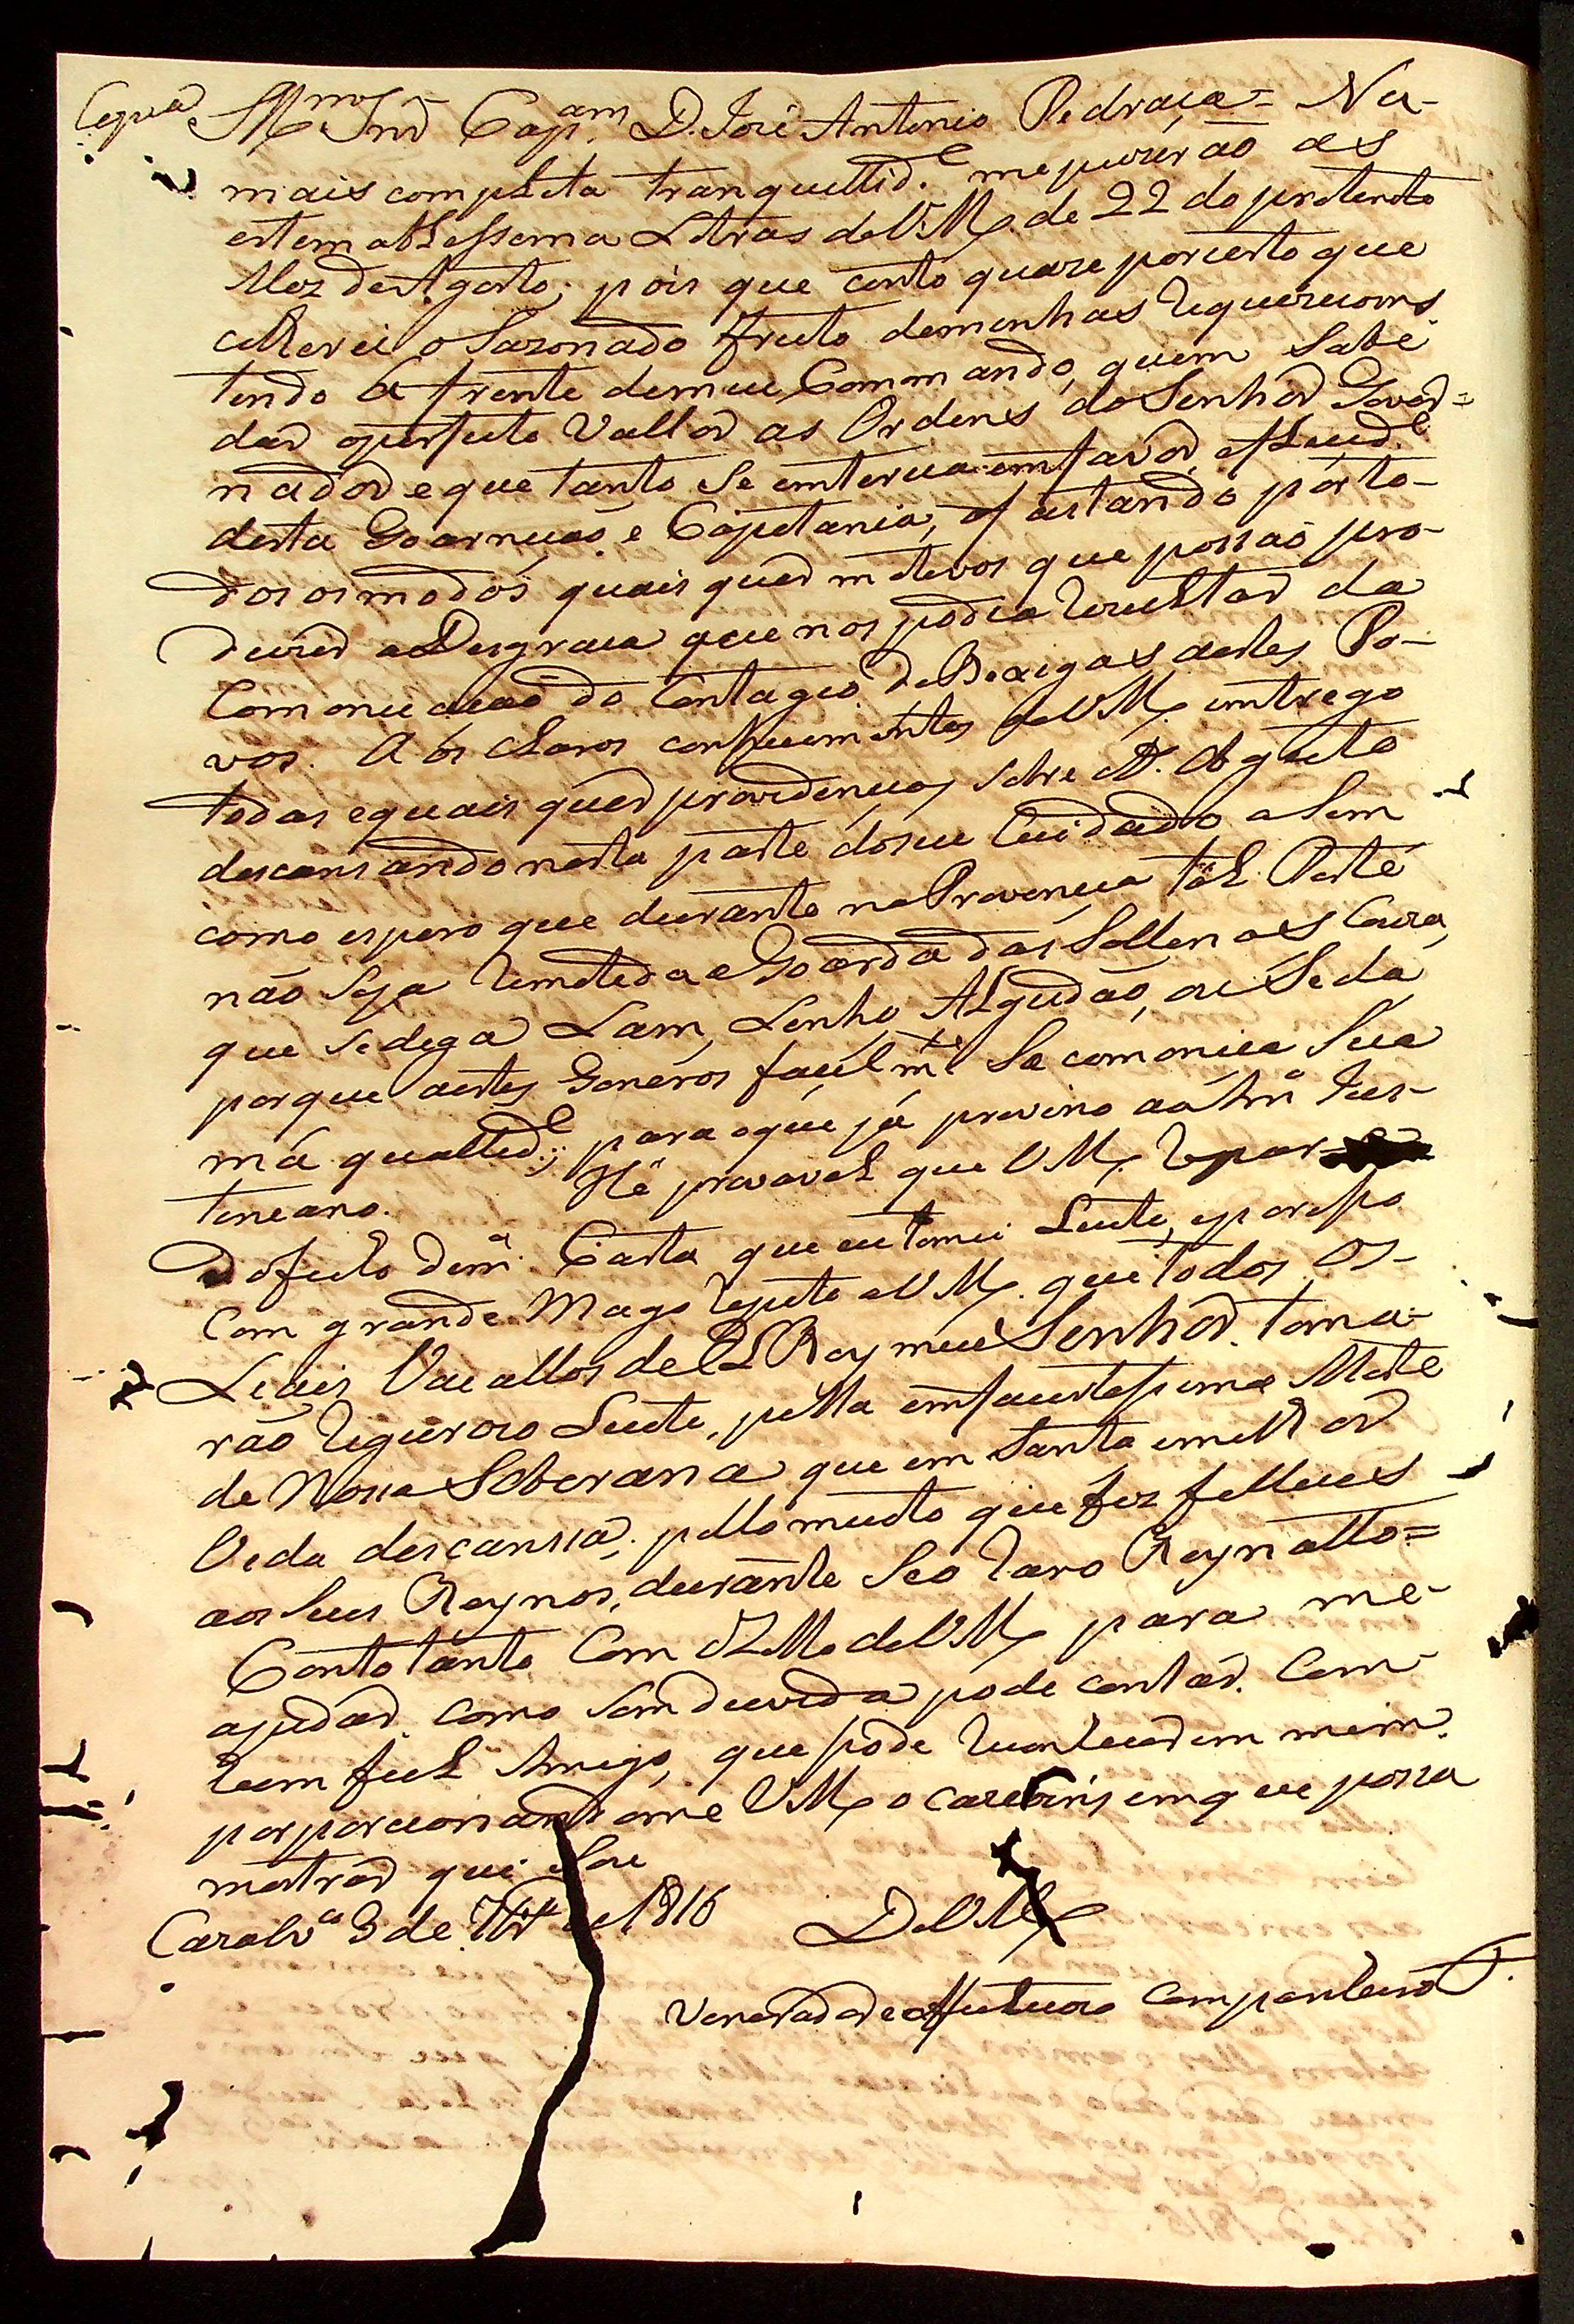 Copia Mmo Snr Capam D. José Antonio Pedraça = Na-
mais completa tranquellide me puzerão as
estemablessema Letras de VMe de 22 do preterito
Mez de Agosto; pois que conto quaze por certo que
colherei o Sazonado fructo de minhas requeziçoins
tendo a frente de meu Commando, quem Sabe
dar o perfeito Vallor as Ordens do Senhor Gover=
nador e que tanto Se enterça em favor,
desta Goarnição e Capetania, afastando por to-
dos os modos quais quer motevos que possão pro-
duzir a Desgraça que nos podia Rezultar da
Comonicação do Contageo de Bexigas destes Po-
vos. Aos claros conhecimentos de VMe entrego
todas e quais quer providencias sobre tt. Obgecto
descansando nesta parte do seu Cuidado asem
como espero que durante na Provencia tal Peste
não Seja Remeteda a Goarda das Sallenas Couza,
que Se dega Lam, Lenho, Algudão, ou Seda
porque destes Generos facilmte Se comonica Sua
má quallide; para o que já previno ao Snr Jus-
teneano. Hé provavel que VMe Repar
do feixo de ma Carta que eu tomei Lucto, e por isso
Com grande Magoa Repito a VMe que todos Os-
Leais Vaçallos de El Rey meu Senhor toma-
rão Rigurozo Lucto, pella emfaustessema Morte
de Nossa Soberana que em Santa e melhor
Veda descança; pello muito que fez fellices
aos Seus Reynos, durante Seo Raro Reynatto =
Conto tanto Com o Zello de VMe para me-
ajudar, como Sem duveda pode contar Com-
hum fiel Amego, que pode Reconhecer em mim.
porporcionandome VMe ocaziõins em que possa
mostrar que Sou
DeVMe
Caralvas 3 de 7bro de 1816
Venerador e Afectuozo Companheiro